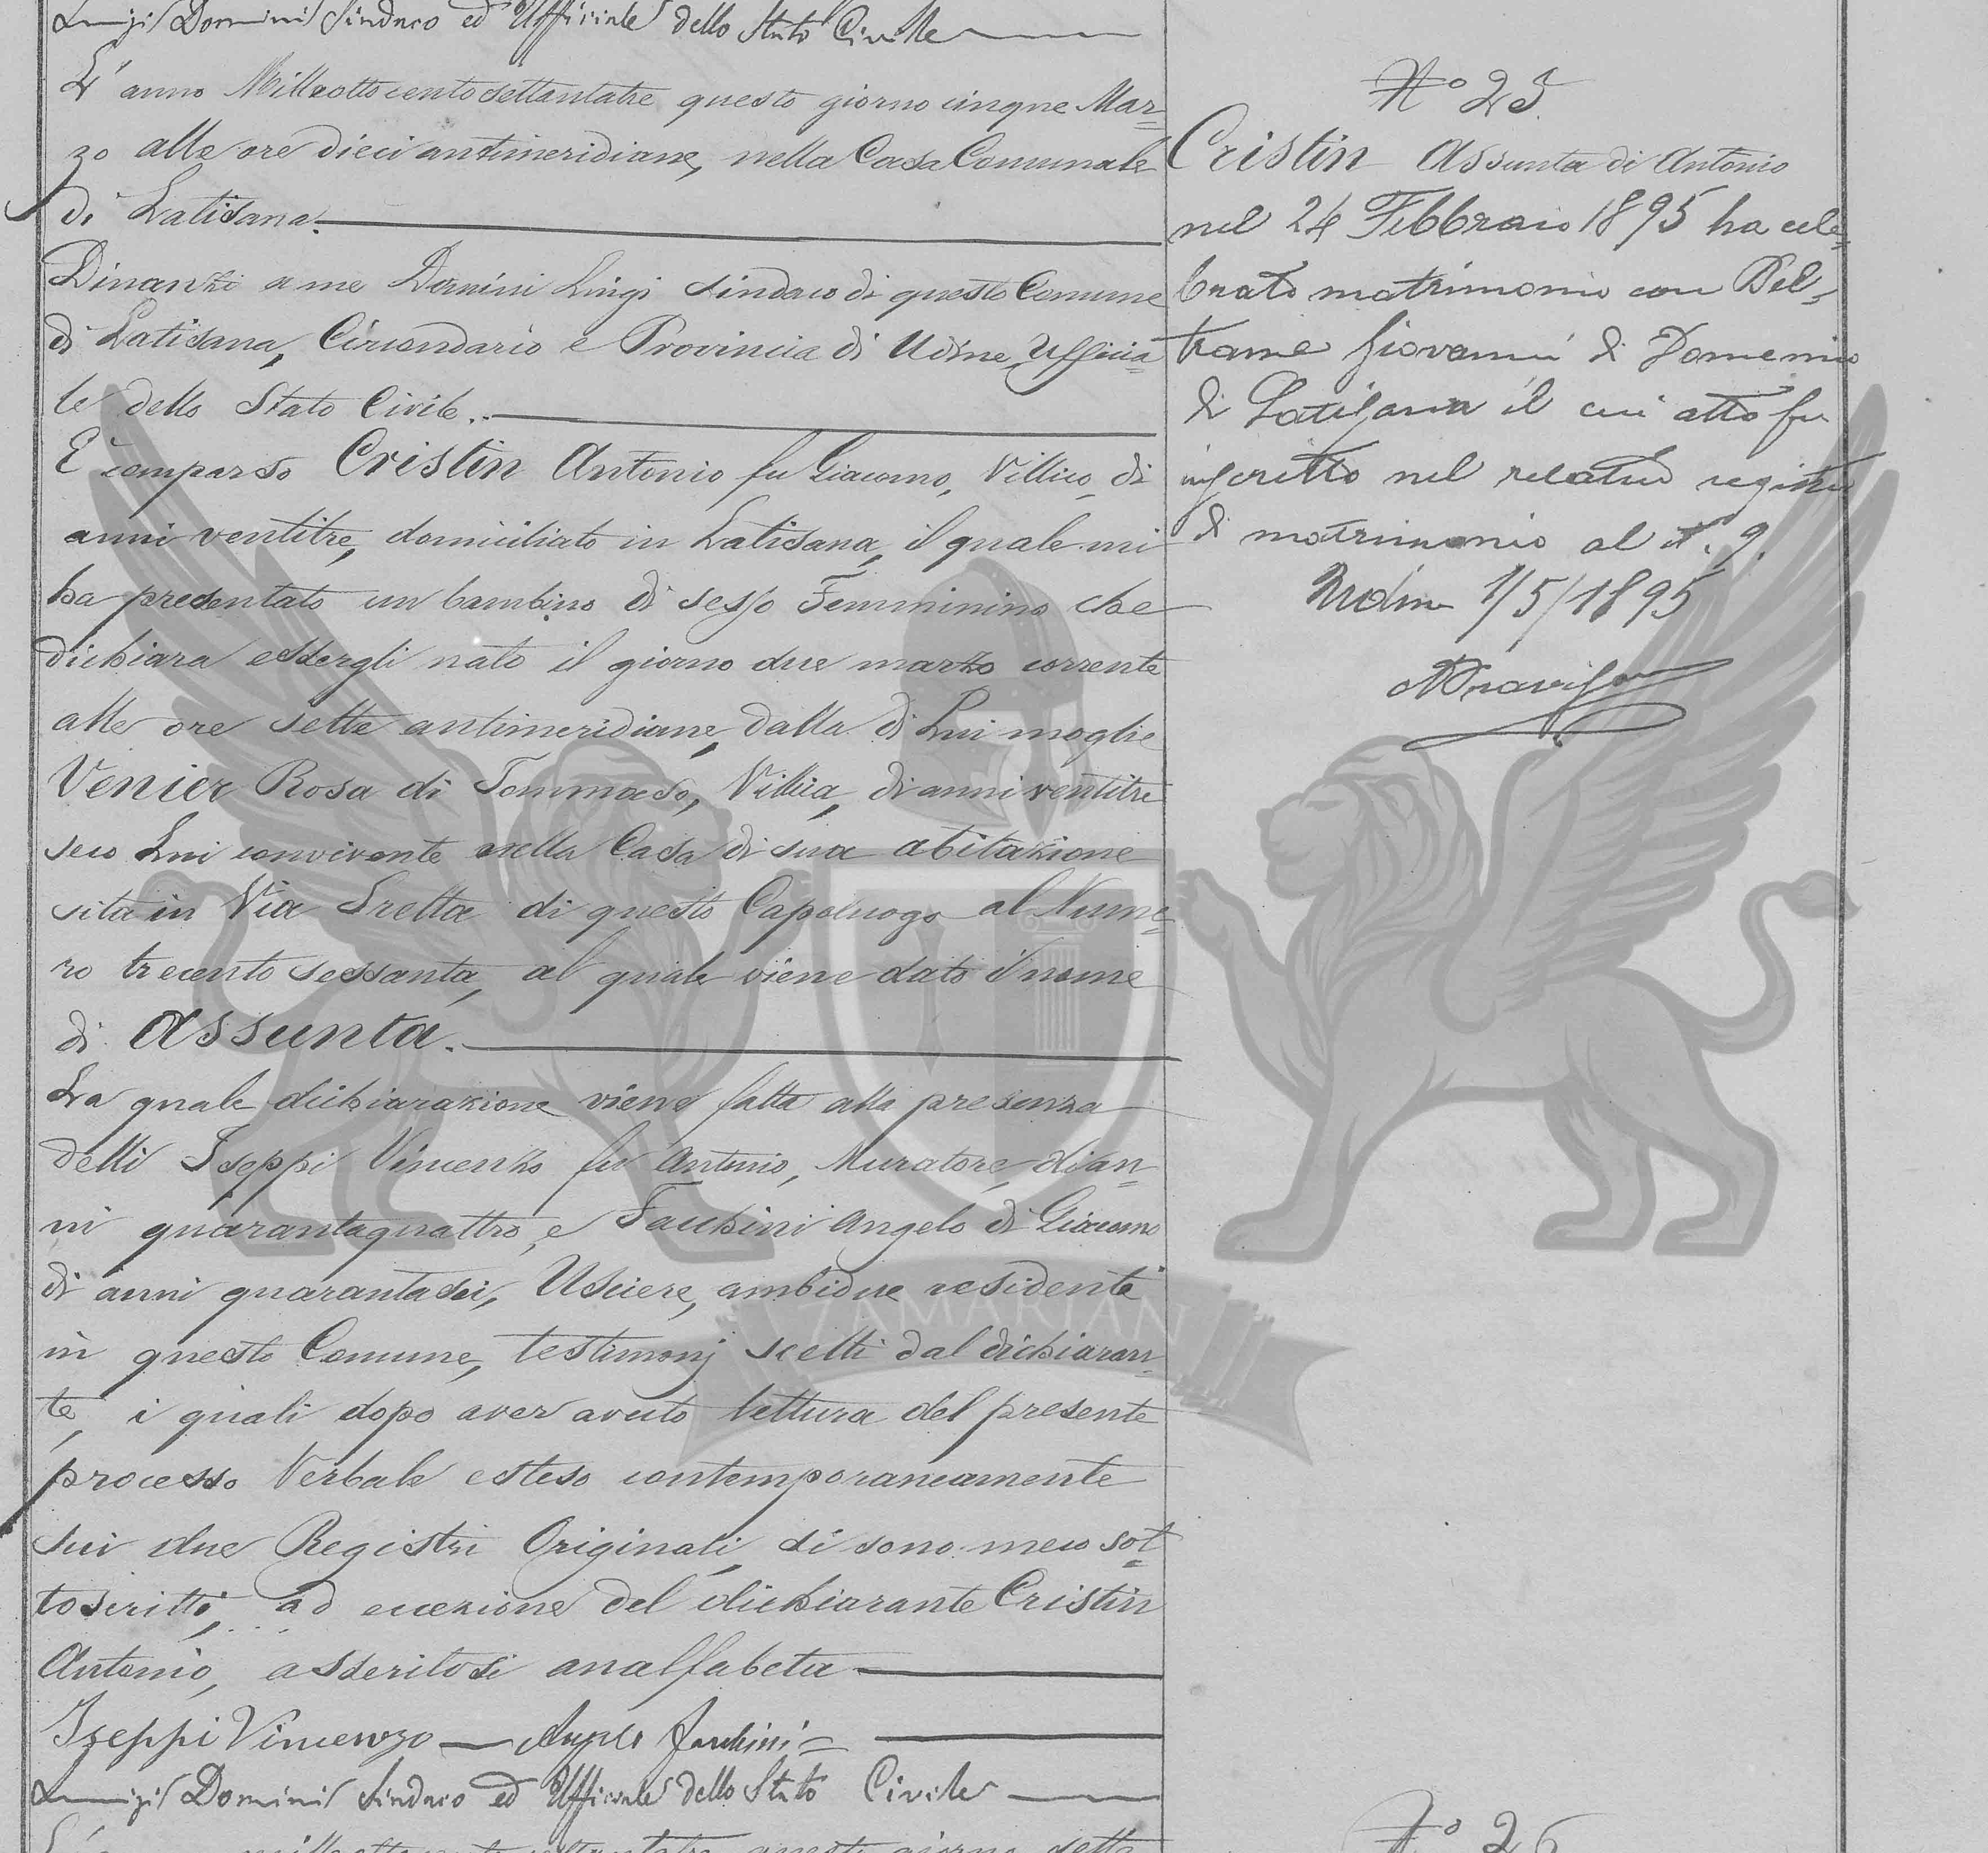 Luigi Domini Sindaco ed Ufficiale dello Stato Civile
L'anno Milleottocentosettantatre questo giorno cinque Mar=
zo alle ore dieci antimeridiane, nella Casa Comunale
di Latisana.
Dinanzi a me Domini Luigi Sindaco di questo Comune
di Latisana, Circondario e Provincia di Udine, Uffizia=
le dello Stato Civile.
È comparso Cristin Antonio fu Giacomo, Villico, di
anni ventitre, domiciliato in Latisana, il quale mi
ha presentato un bambino di sesso Femminino che
dichiara essergli nato il giorno due marzo corrente
alle ore sette antimeridiane, dalla di Lui moglie
Venier Rosa di Tommaso, Villica, di anni ventitre
seco Lui convivente nella Casa di sua abitazione
sita in Via Stretta di questo Capoluogo al Nume=
ro trecento sessanta, al quale viene dato il nome
di Assunta.
La quale dichiarazione viene fatta alla presenza
delli Iseppi Vincenzo fu Antonio, Muratore, di an=
ni quarantaquattro, e Facchini Angelo di Giacomo
di anni quarantasei, Usciere, ambidue residenti
in questo Comune, testimonj scelti dal dichiaran=
te, i quali dopo aver avuto lettura del presente
processo Verbale esteso contemporaneamente
sui due Registri Originali, si sono meco sot=
toscritti, ad eccezione del dichiarante Cristin
Antonio, asseritosi analfabeta
Iseppi Vincenzo — Angelo Facchini =
Luigi Domini Sindaco ed Ufficiale dello Stato Civile
N° 25.
Cristin Assunta di Antonio
nel 24 Febbraio 1895 ha cele=
brato matrimonio con Bel=
trame Giovanni di Domenico
di Latisana il cui atto fu
inscritto nel relativo registro
di matrimonio al N. 9.
Udine 1/5/1895
N° 26
ZAMARIAN